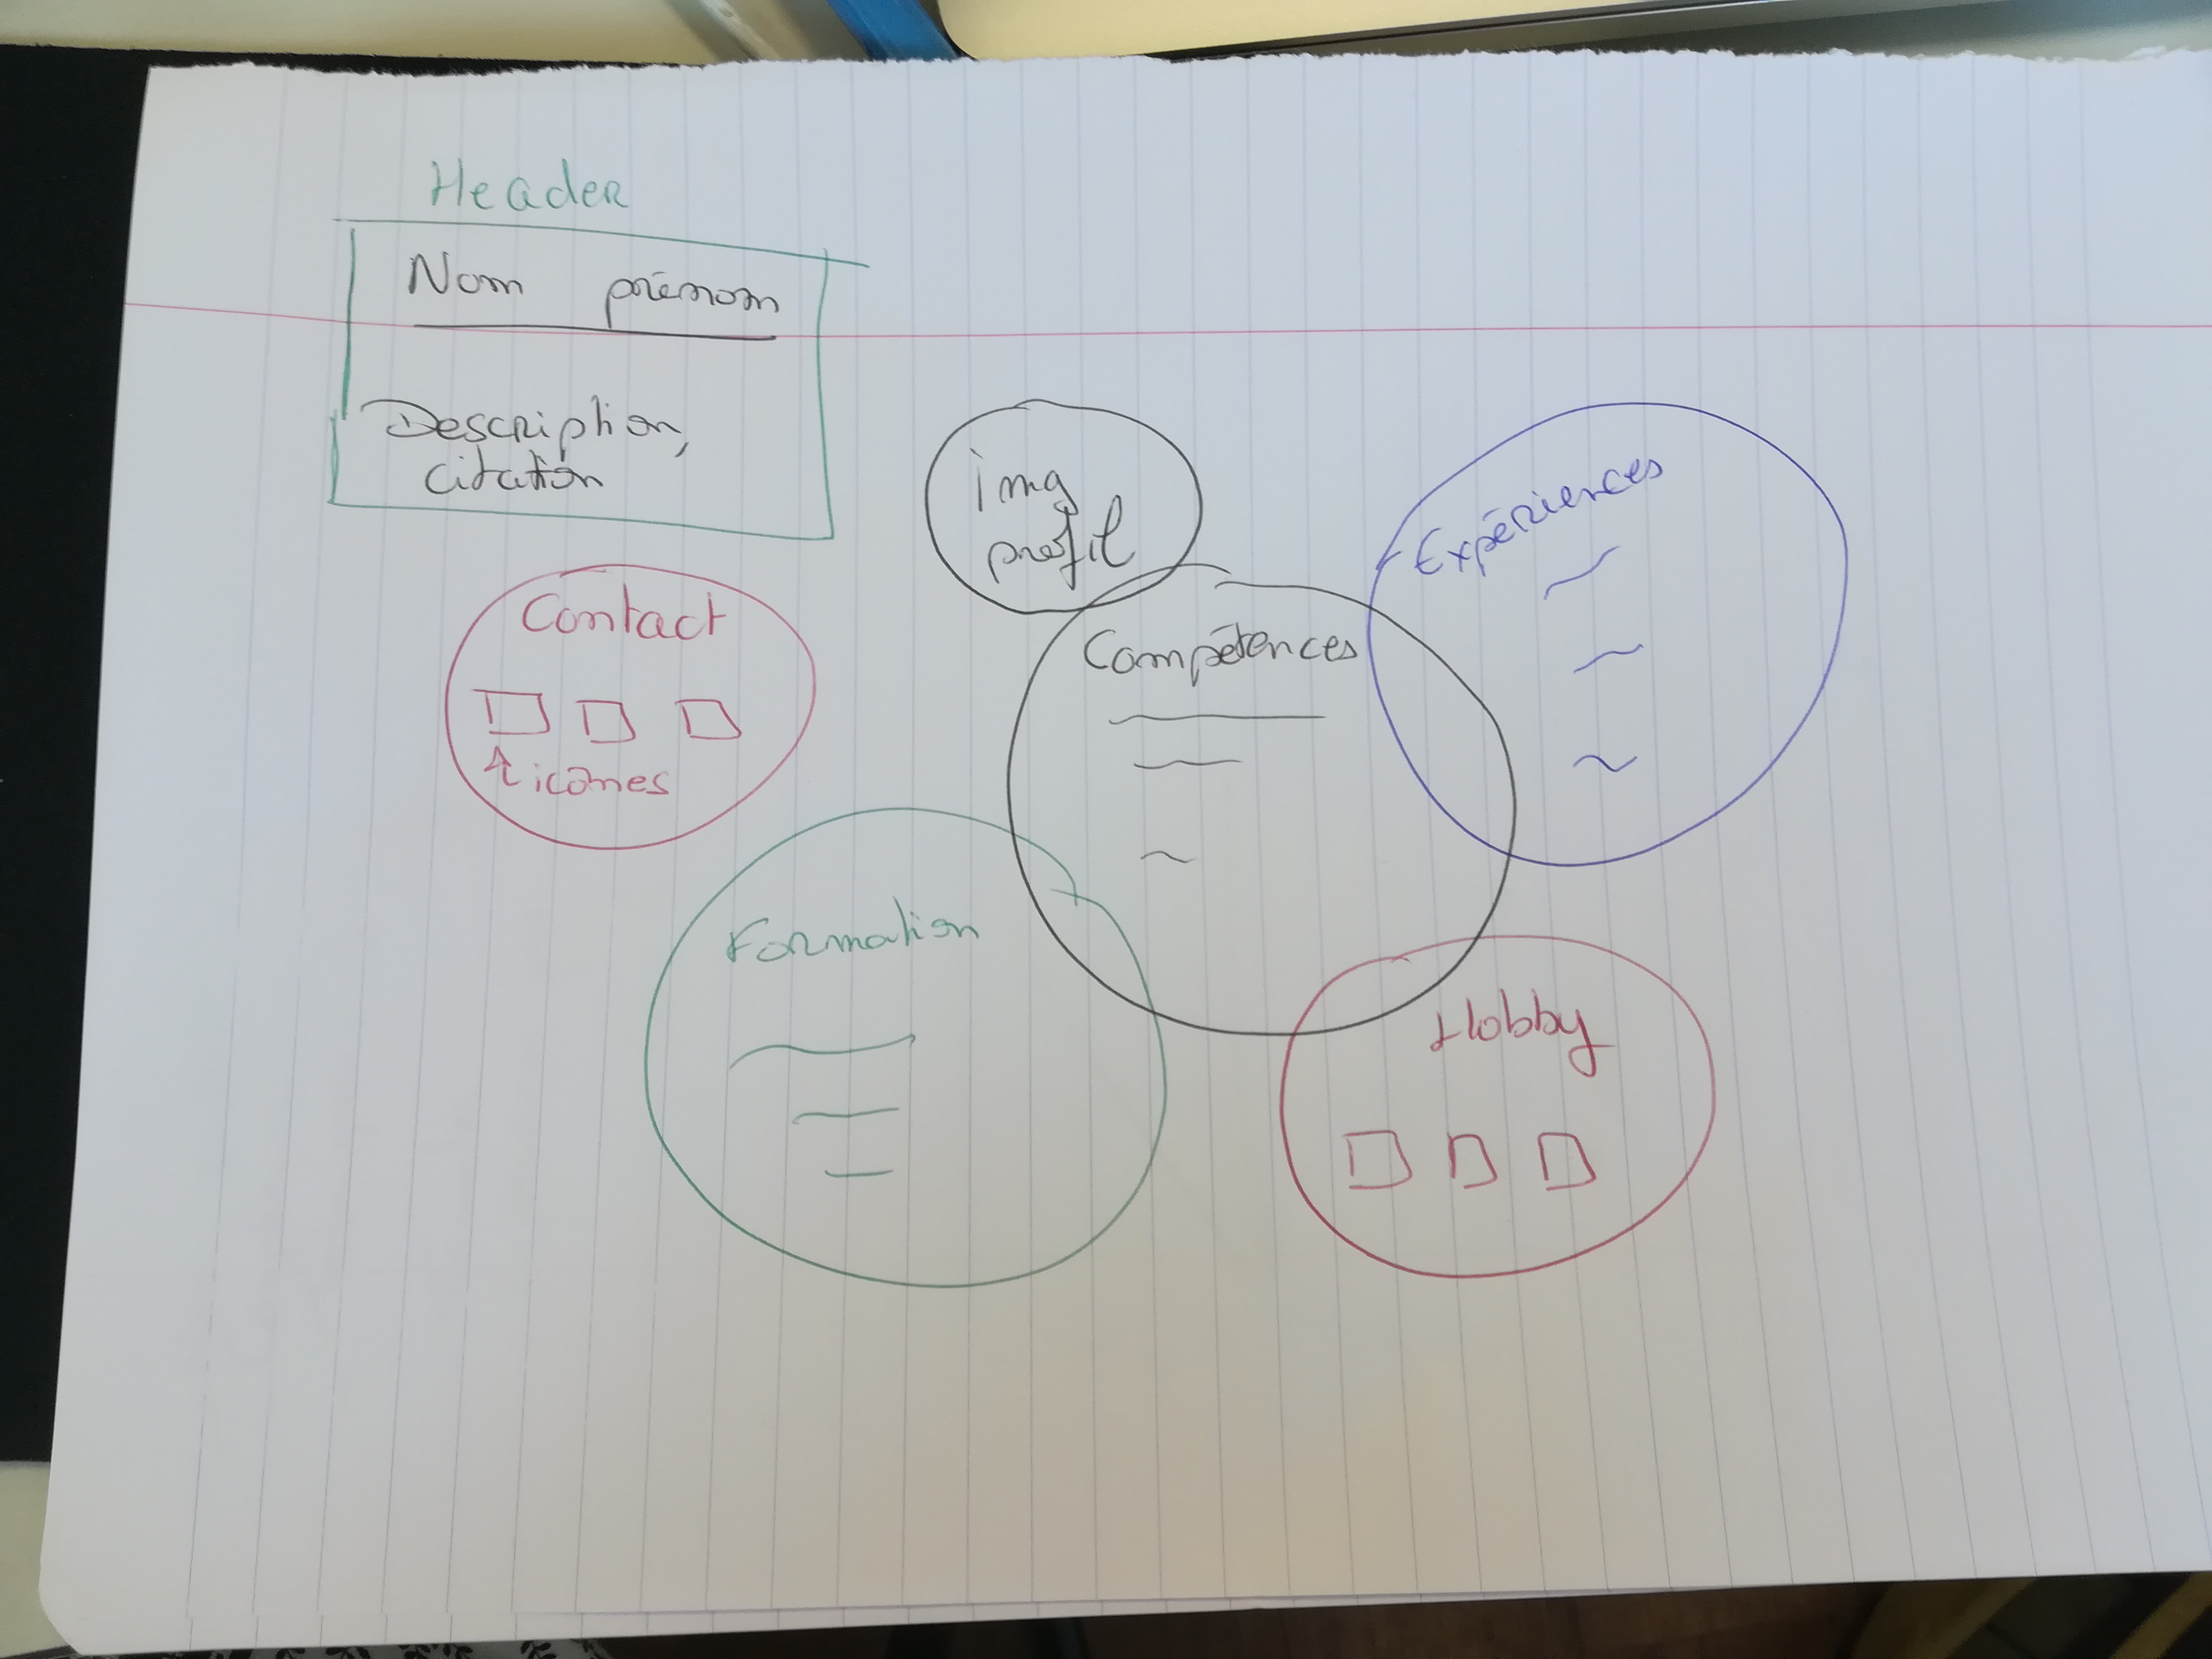 Header
Nom prénom
Description,
citation
img
profil
Expériences
Contact
icônes
Compétences
Formation
Hobby